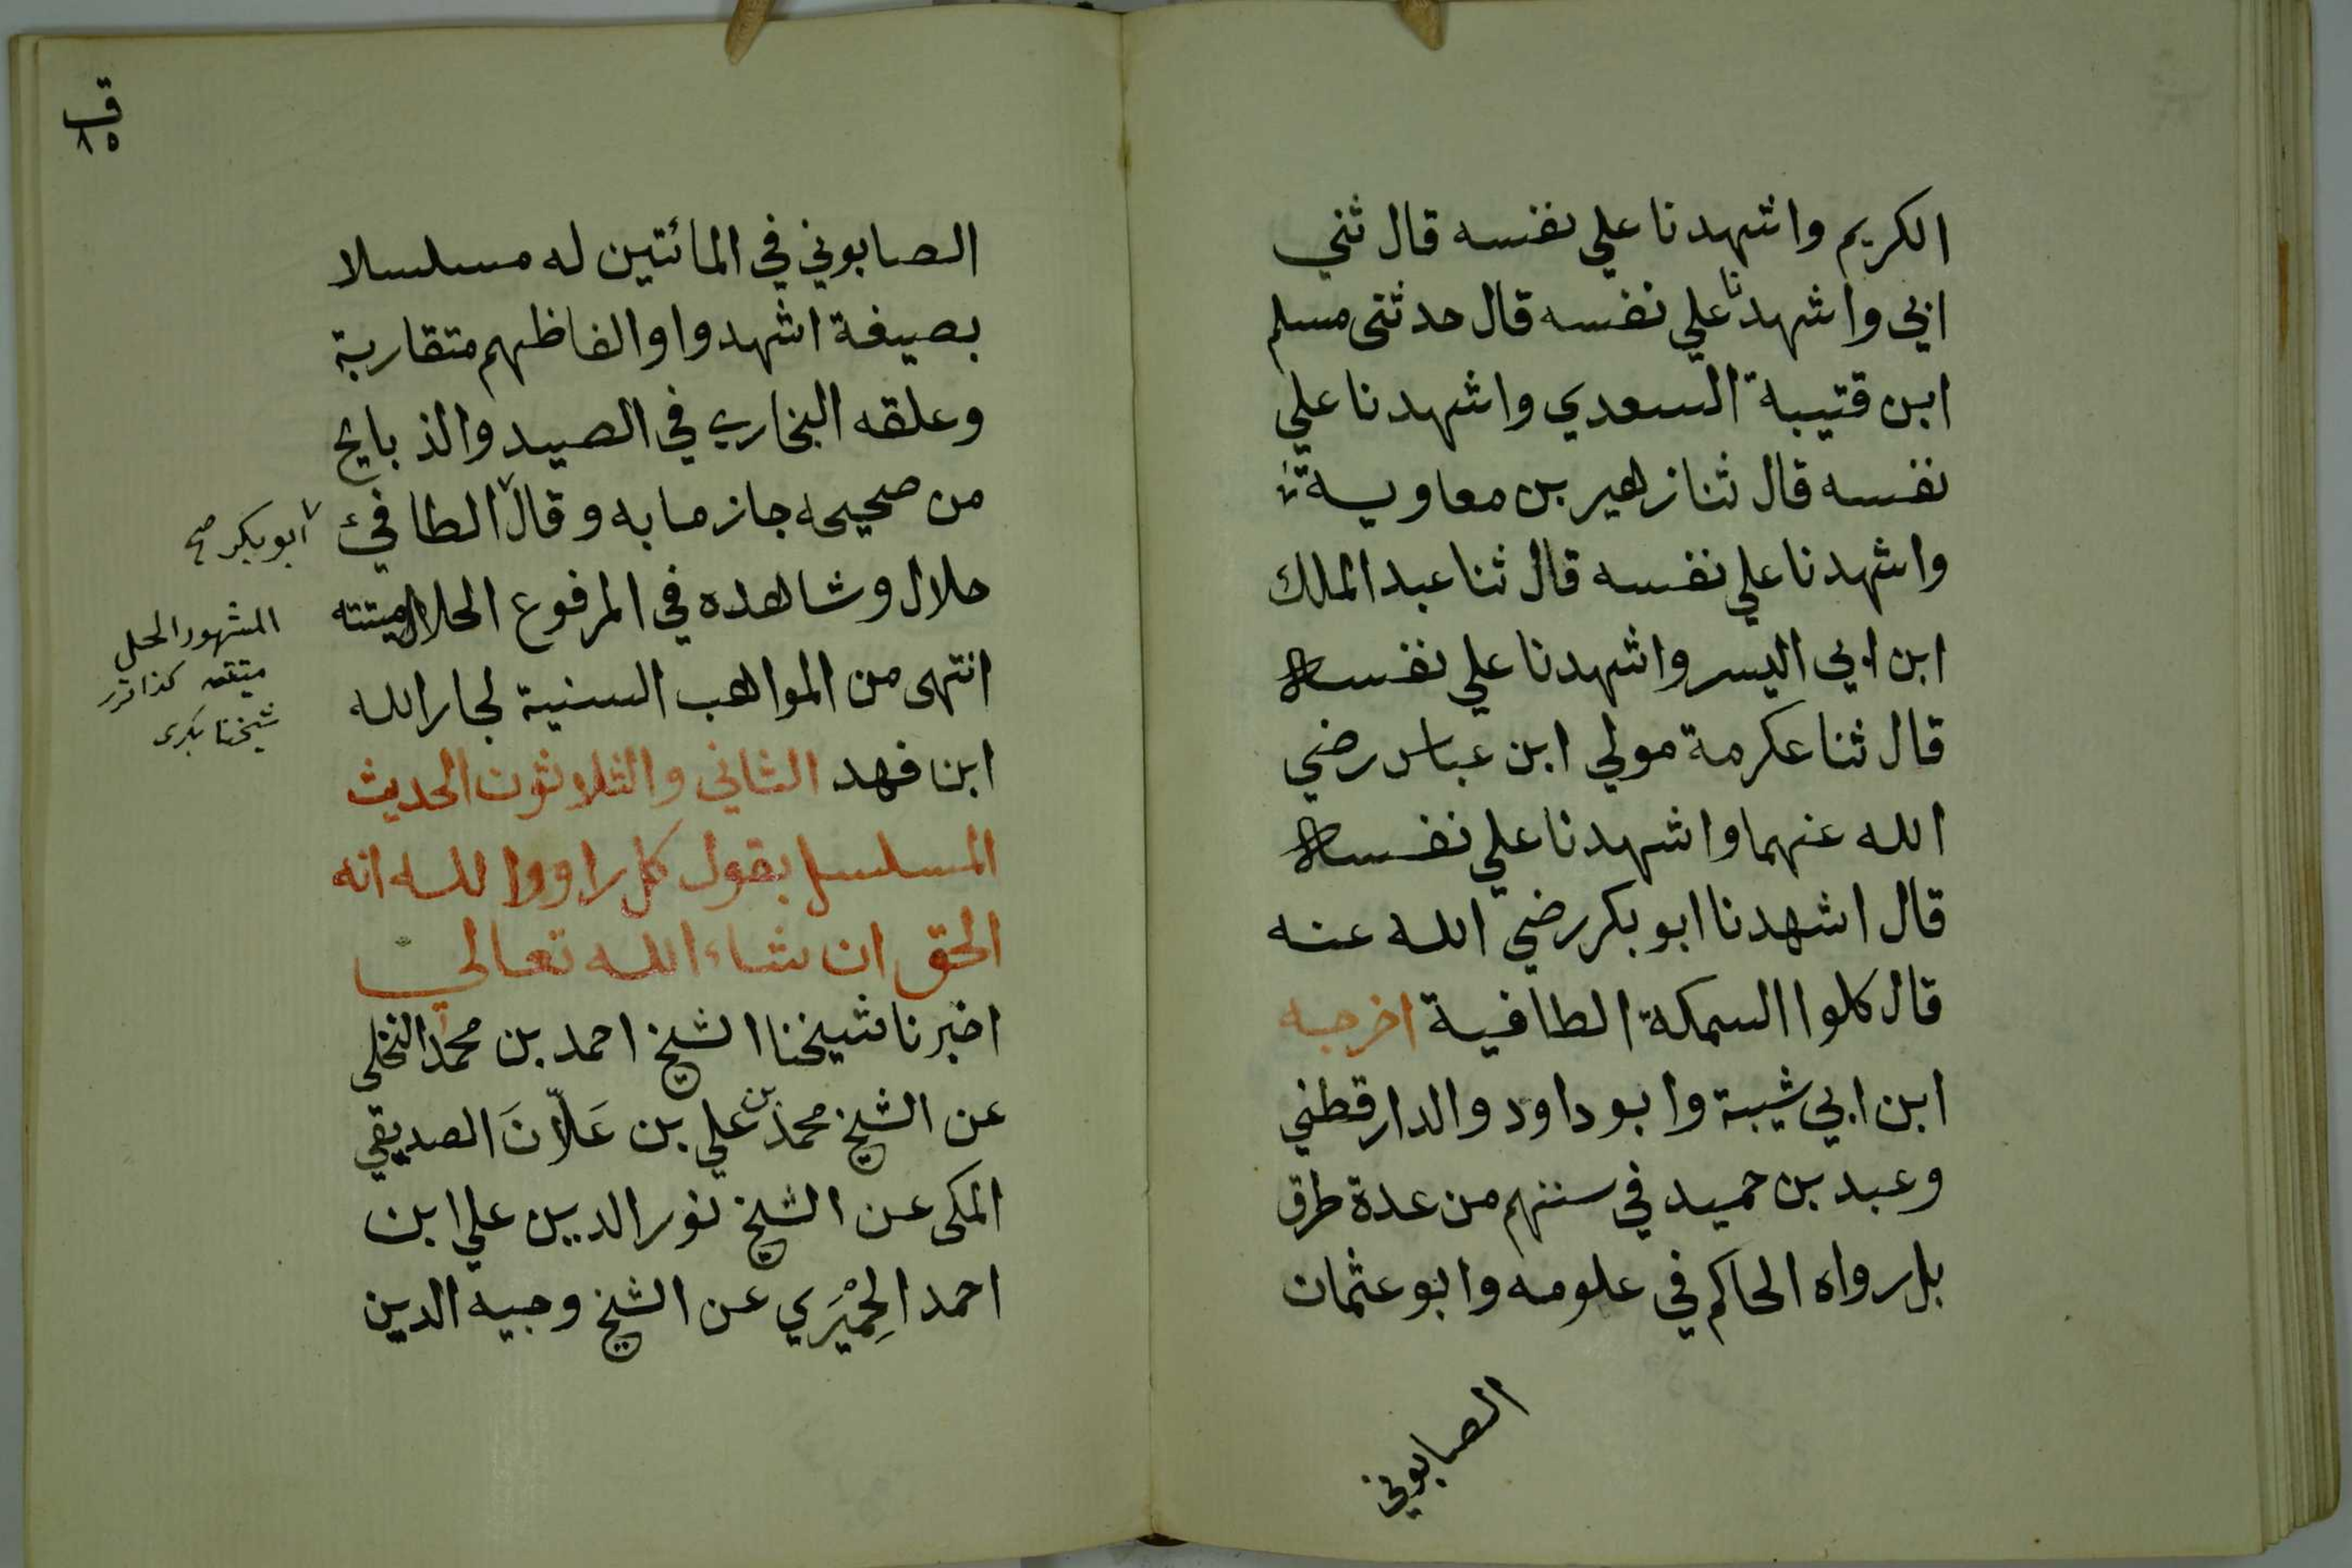 الكريم واشهدنا علي نفسه قال ثني
ابي واشهدنا علي نفسه قال حدثنى مسلم
ابن قتيبة السعدي واشهدنا علي
نفسه قال ثنا زهير بن معاوية
واشهدنا علي نفسه قال ثنا عبد الملك
ابن ابي اليسر واشهدنا علي نفسه
قال ثنا عكرمة مولي ابن عباس رضي
الله عنهما واشهدنا علي نفسه
قال اشهدنا ابو بكر رضي الله عنه
قال كلوا السمكة الطافية اخرجه
ابن ابي شيبة وابو داود والدارقطني
وعبد بن حميد في سننهم من عدة طرق
بل رواه الحاكم في علومه وابو عثمان
الصابوني
ق
٨٥
الصابوني في المائتين له مسلسلا
بصيغة اشهدوا والفاظهم متقاربة
وعلقه البخاري في الصيد والذبايح
من صحيحه جازما به وقال الطافئ
حلال وشاهده في المرفوع الحلال ميتته
انتهى من المواهب السنية لجار الله
ابن فهد الثاني والثلاثون الحديث
المسلسل بقول كل راو والله انه
الحق ان شاء الله تعالي
اخبرنا شيخنا الشيخ احمد بن محمد النخلي
عن الشيخ محمد بن علي بن عَلّانَ الصديقي
المكى عن الشيخ نور الدين علي ابن
احمد الحِمْيَري عن الشيخ وجيه الدين
ابو بكر صح
المشهور الحل
ميتته كذا
شيخنا بكرى